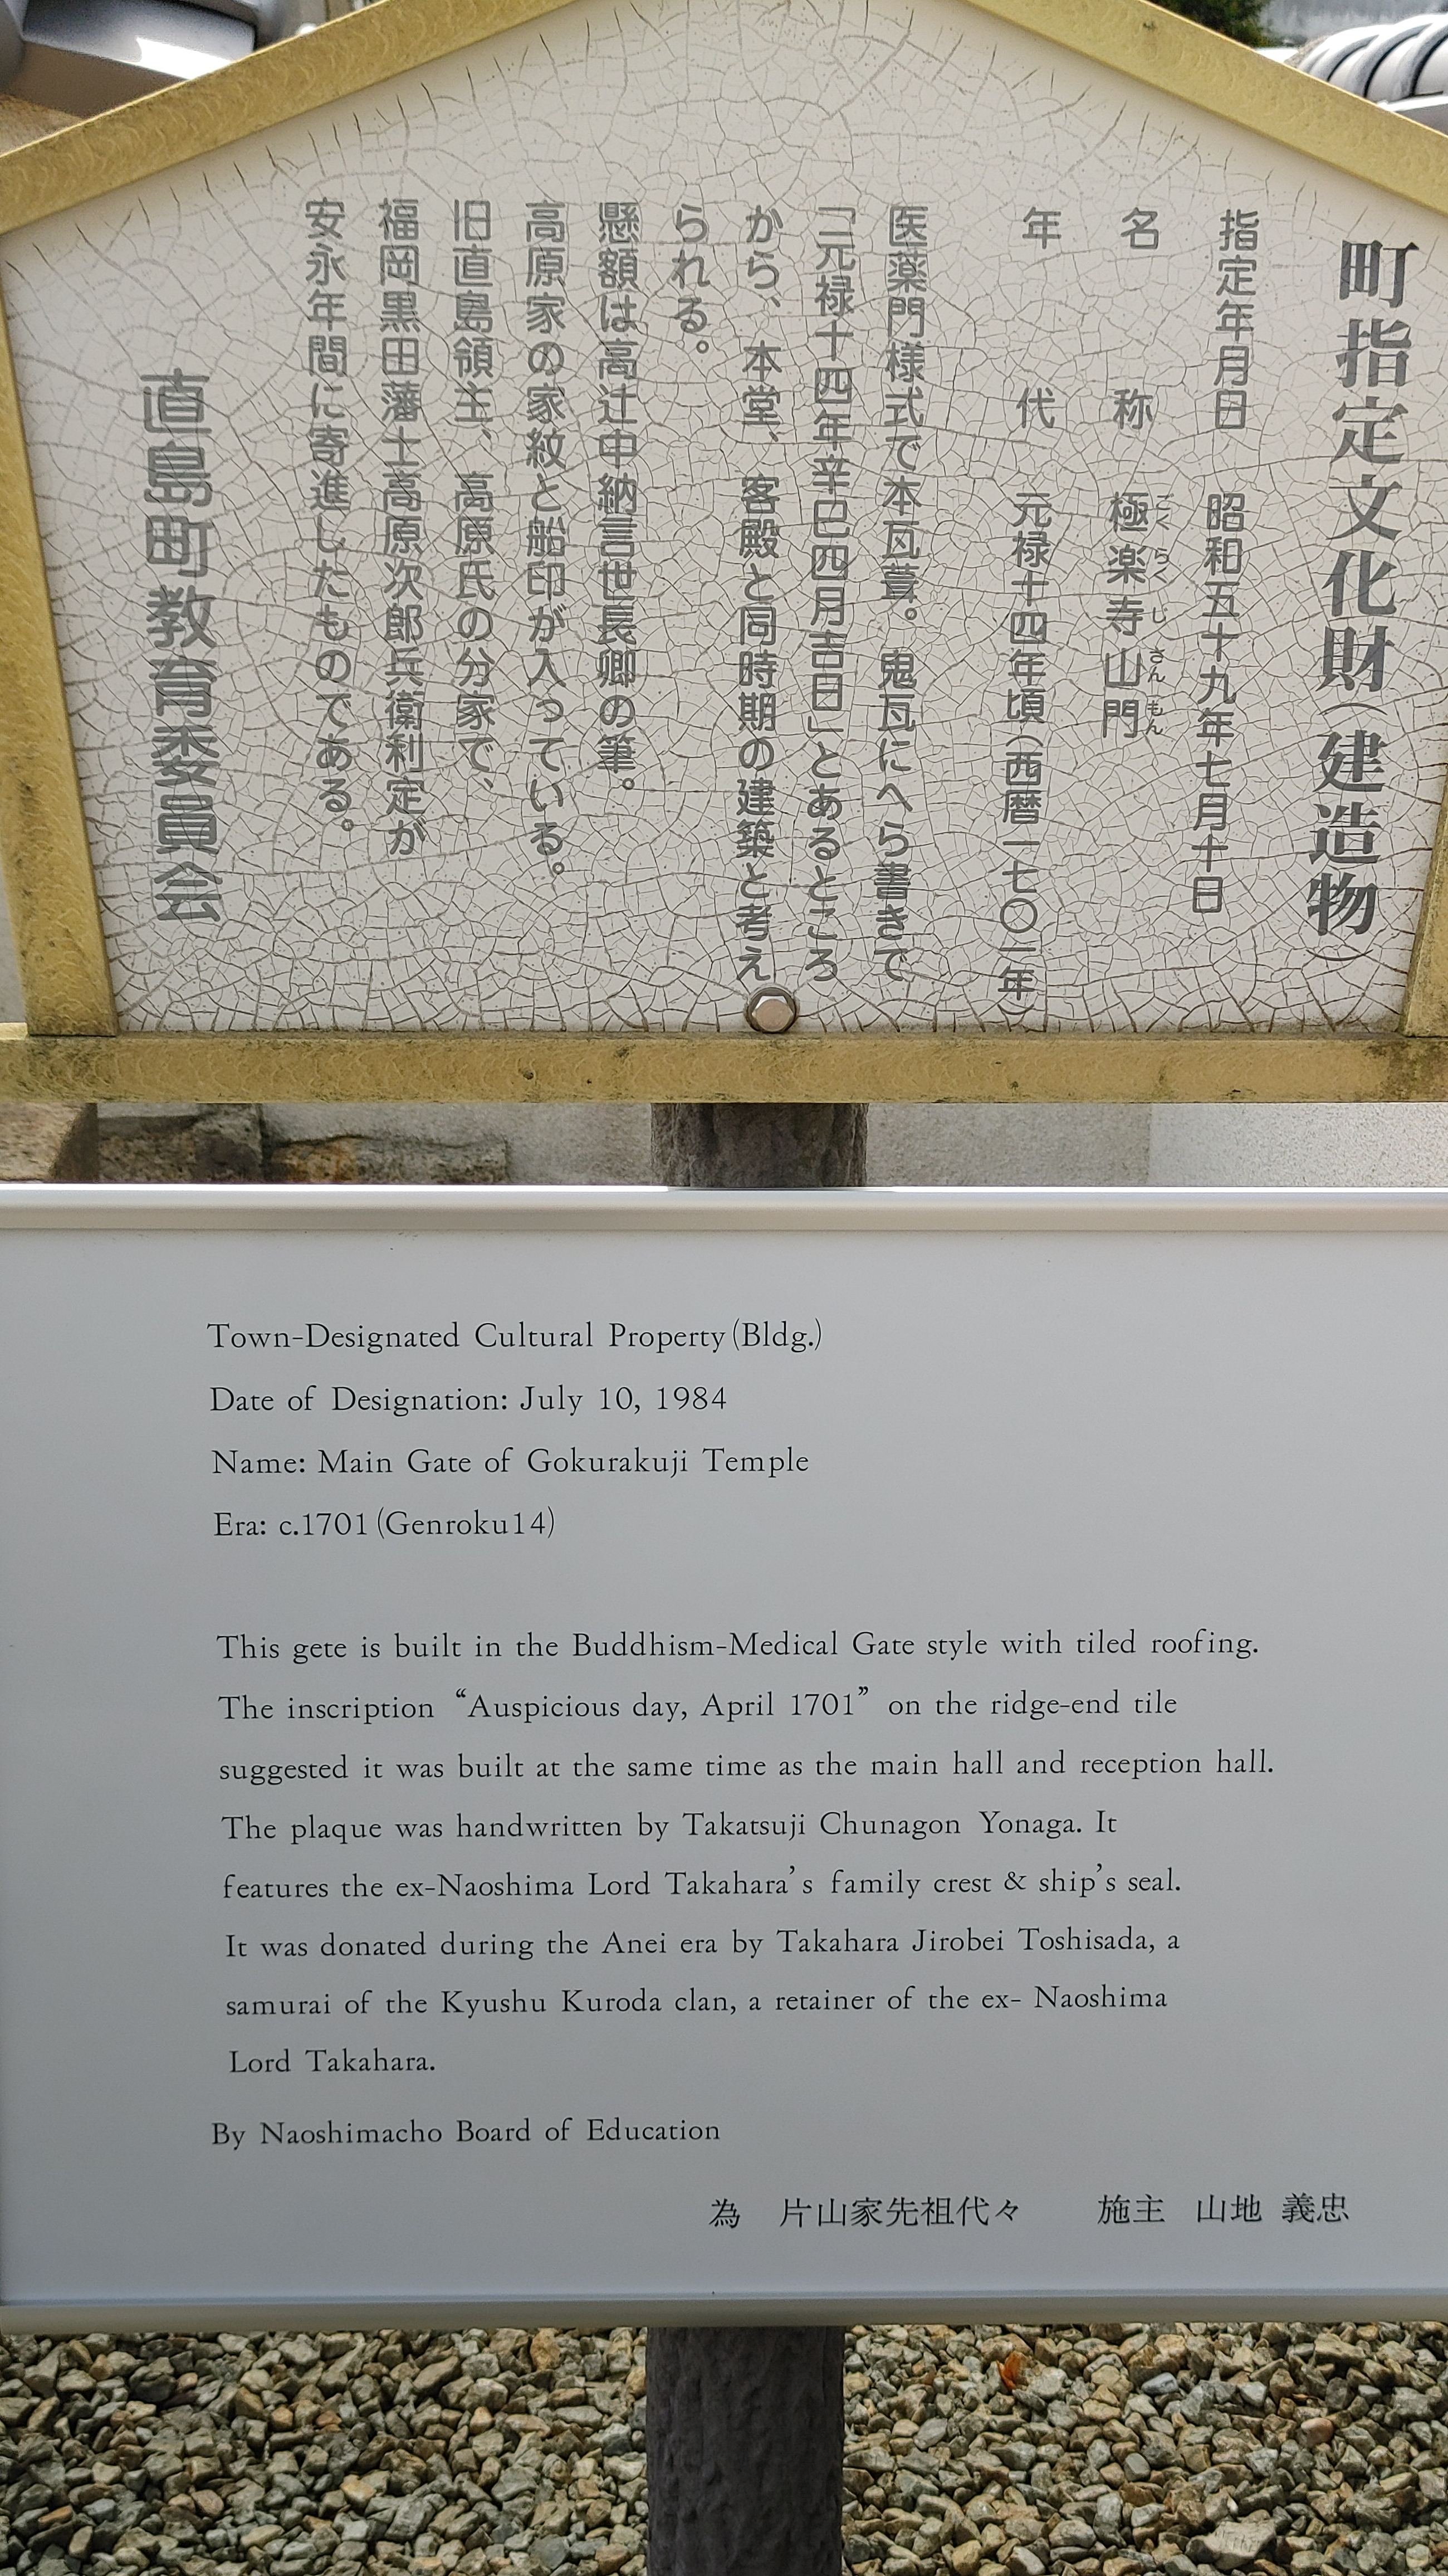 町指定文化財（建造物）
指定年月日　昭和五十九年七月十日
名　　称　極楽寺山門
ごくらくじさんもん
年　　代　元禄十四年頃（西暦一七〇一年）
医薬門様式で本瓦葺。鬼瓦にへら書きで
「元禄十四年辛巳四月吉日」とあるところ
から、本堂、客殿と同時期の建築と考え
られる。
懸額は高辻中納言世長卿の筆。
高原家の家紋と船印が入っている。
旧直島領主、高原氏の分家で、
福岡黒田藩士高原次郎兵衛利定が
安永年間に寄進したものである。
直島町教育委員会
Town-Designated Cultural Property (Bldg.)
Date of Designation: July 10, 1984
Name: Main Gate of Gokurakuji Temple
Era: c.1701 (Genroku14)
This gete is built in the Buddhism-Medical Gate style with tiled roofing.
The inscription “Auspicious day, April 1701” on the ridge-end tile
suggested it was built at the same time as the main hall and reception hall.
The plaque was handwritten by Takatsuji Chunagon Yonaga. It
features the ex-Naoshima Lord Takahara’s family crest & ship’s seal.
It was donated during the Anei era by Takahara Jirobei Toshisada, a
samurai of the Kyushu Kuroda clan, a retainer of the ex- Naoshima
Lord Takahara.
By Naoshimacho Board of Education
為　片山家先祖代々　　施主　山地 義忠